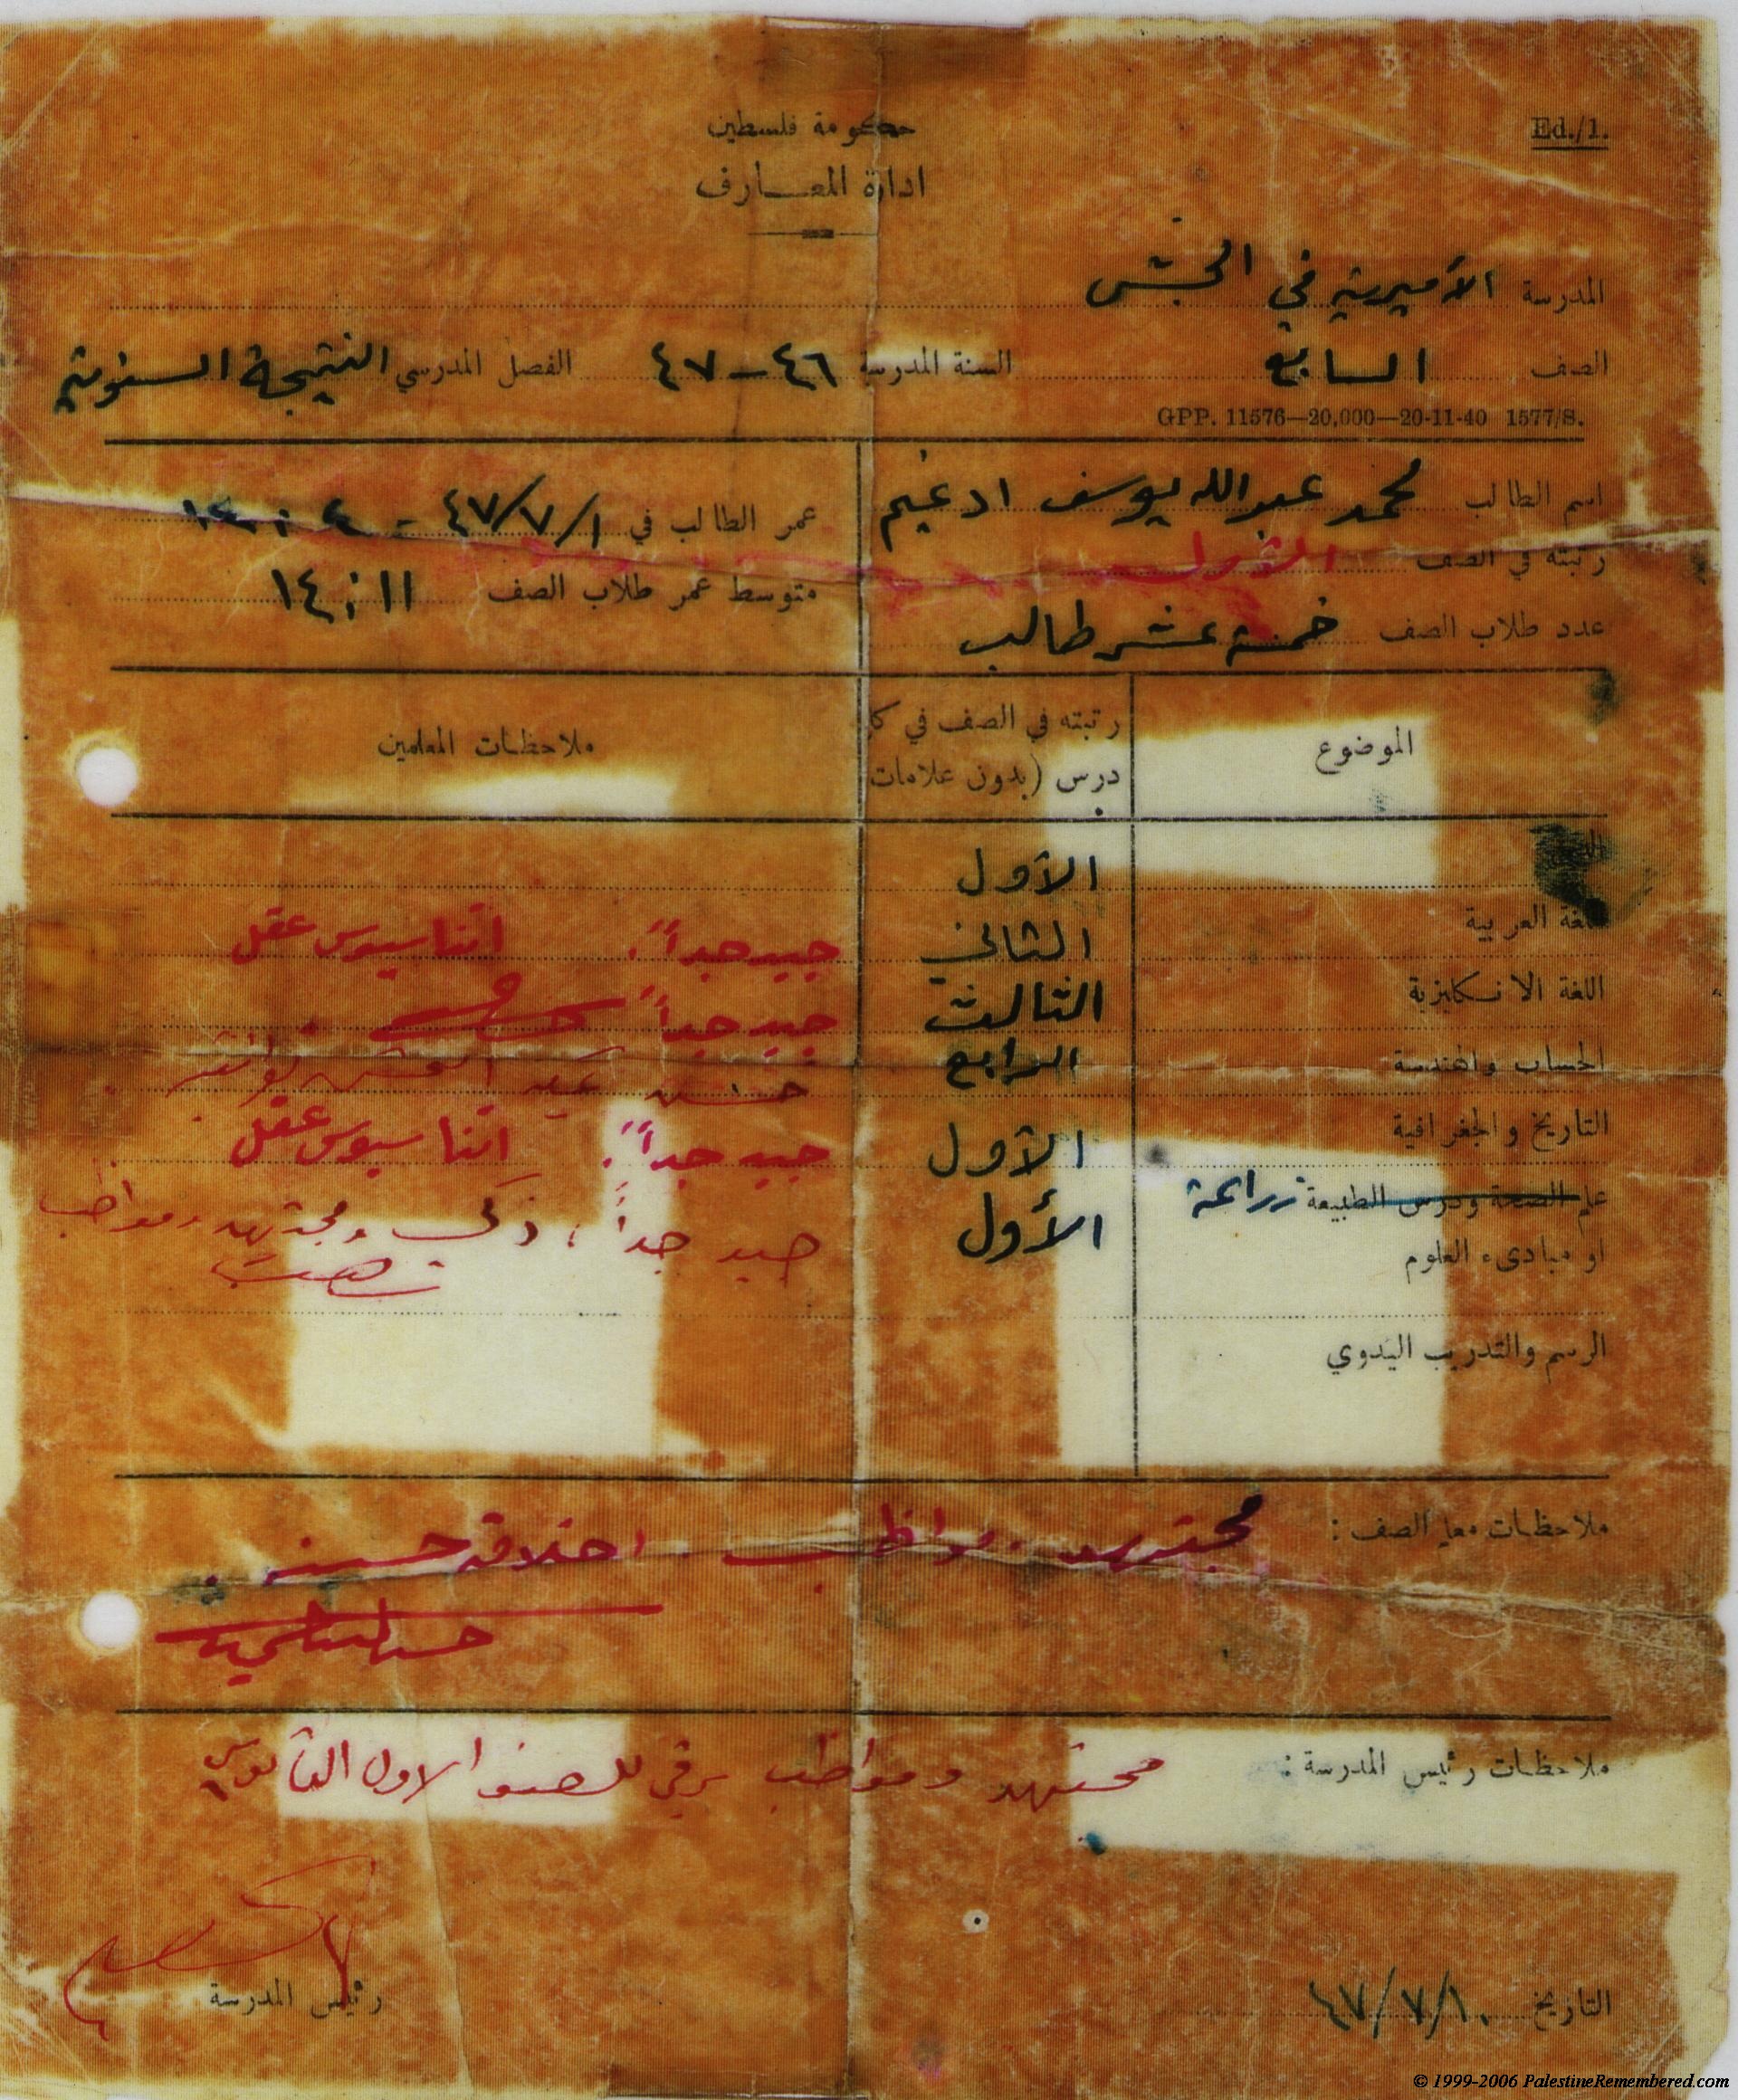 Ed./1.
حكومة فلسطين
ادارة المعارف
المدرسة الأميرية في الجش
الصف السابع السنة المدرسية ٤٦-٤٧ الفصل المدرسي النتيجة السنوية
GPP. 11576—20,000—20-11-40 1577/S.
اسم الطالب محمد عبدالله يوسف ادغيم عمر الطالب في ٤٧/٧/١
رتبته في الصف الاول متوسط عمر طلاب الصف ١٤،١١
عدد طلاب الصف خمسة عشر طالب
الموضوع رتبته في الصف في كل درس (بدون علامات ملاحظات المعلمين
الاول
اللغة العربية الثاني جيد جداً. اتناسيوس عقل
اللغة الانكليزية الثالث جيد جداً
الحساب والهندسة الرابع حسن
التاريخ والجغرافية الاول جيد جداً. اتناسيوس عقل
علم الصحة ودرس الطبيعة زراعة الأول جيد جداً، ذكي ومجتهد ومواظب
او مبادىء العلوم
الرسم والتدريب اليدوي
ملاحظات معلم الصف: مجتهد. مواظب. اخلاقه حسنه.
ملاحظات رئيس المدرسة: مجتهد ومواظب يرقى للصف الاول الثانوي
رئيس المدرسة
التاريخ ٤٧/٧/١٠
© 1999-2006 PalestineRemembered.com